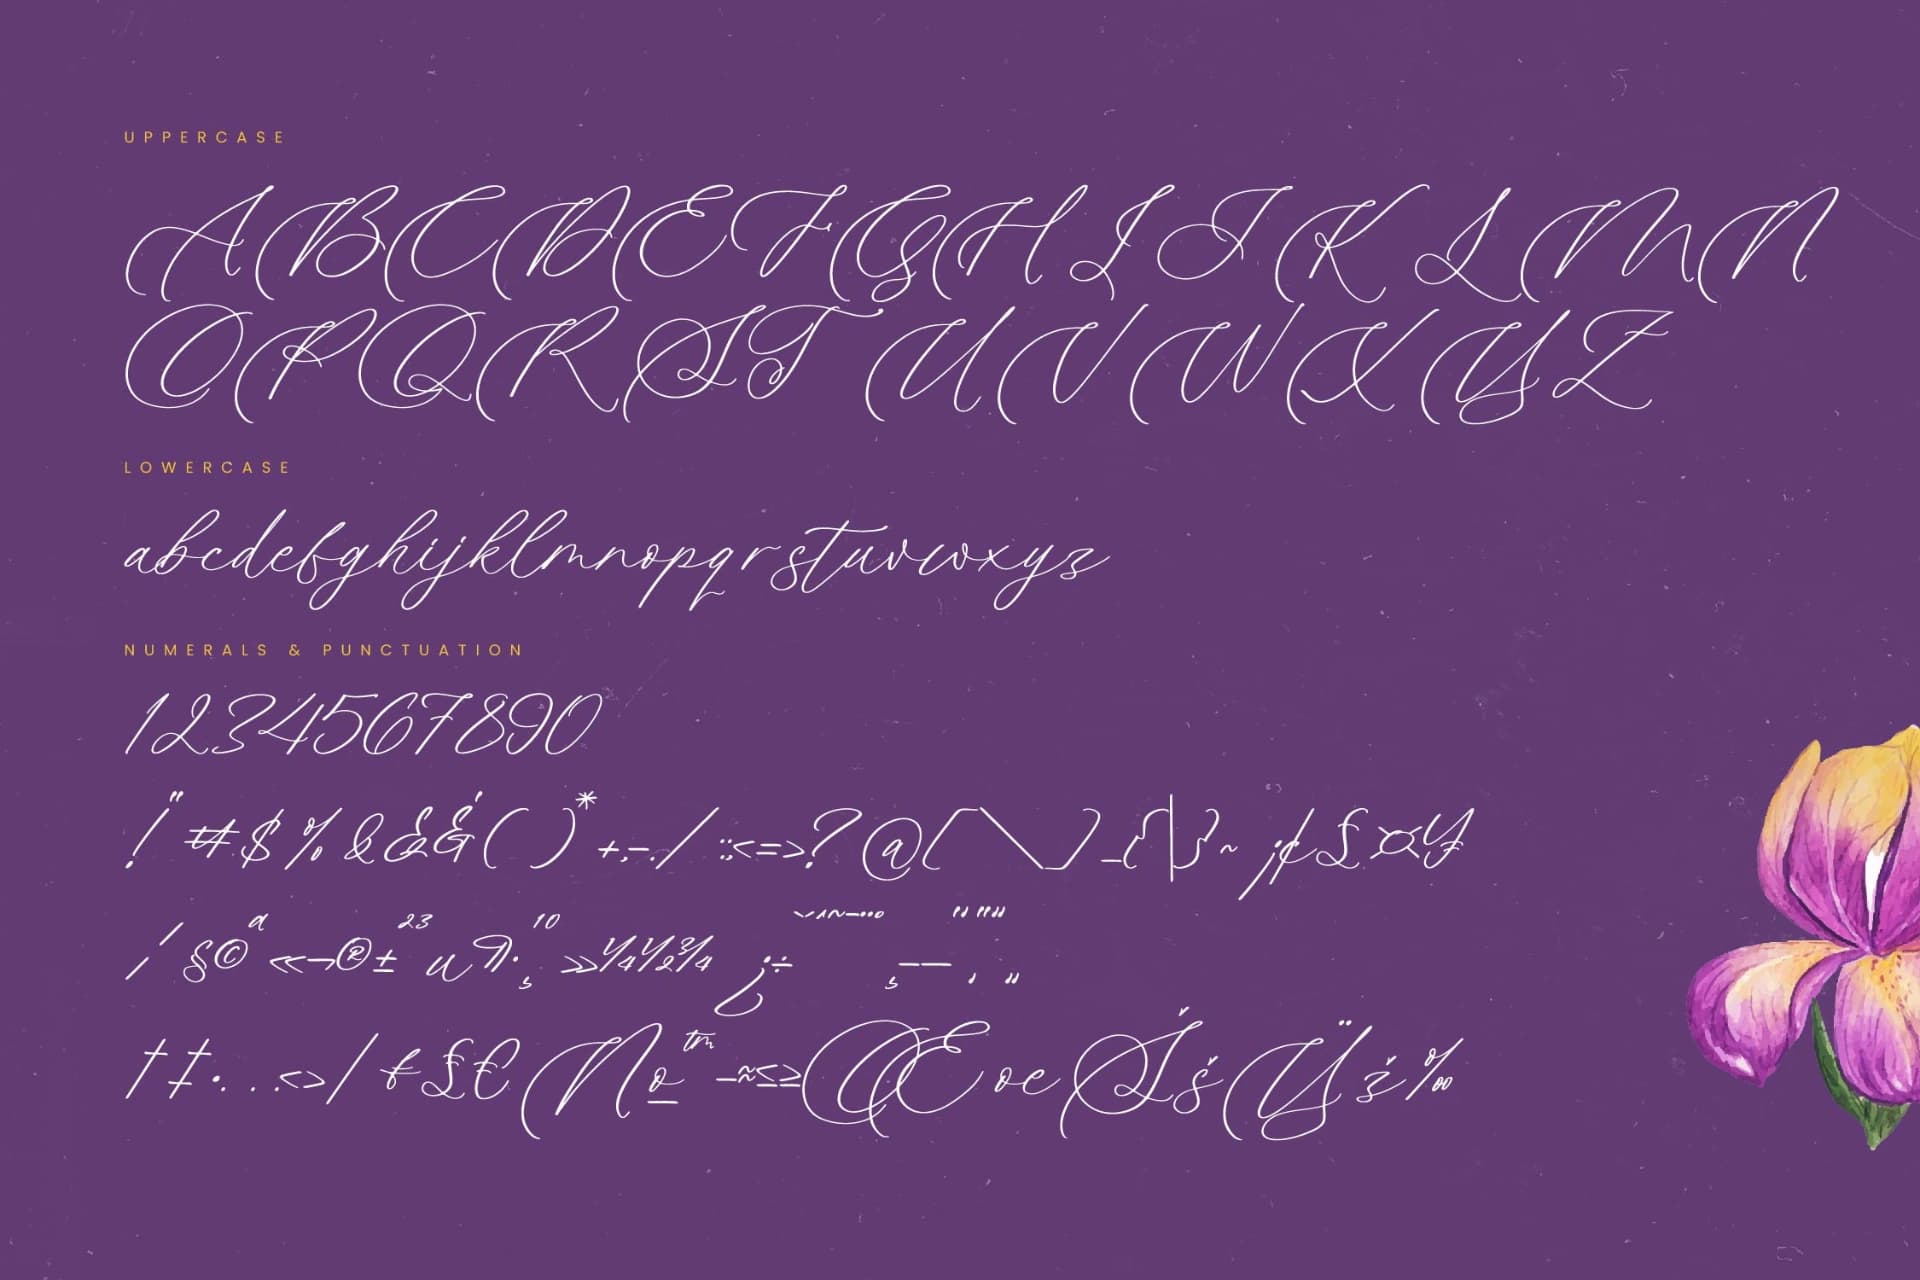 UPPERCASE
ABCDEFGHIJKLMN
OPQRSTUVWXYZ
LOWERCASE
abcdefghijklmnopqrstuvwxyz
NUMERALS & PUNCTUATION
1234567890
!"#$%&&&'()*+,-./:;<=>?@[\]_{|}~¡¢£¤¥
¦§©ª«¬®±²³µ¶·¸¹º»¼½¾¿÷
†‡•...‹›⁄ƒ£€№™−≈≤≥ŒœŠšŸž‰